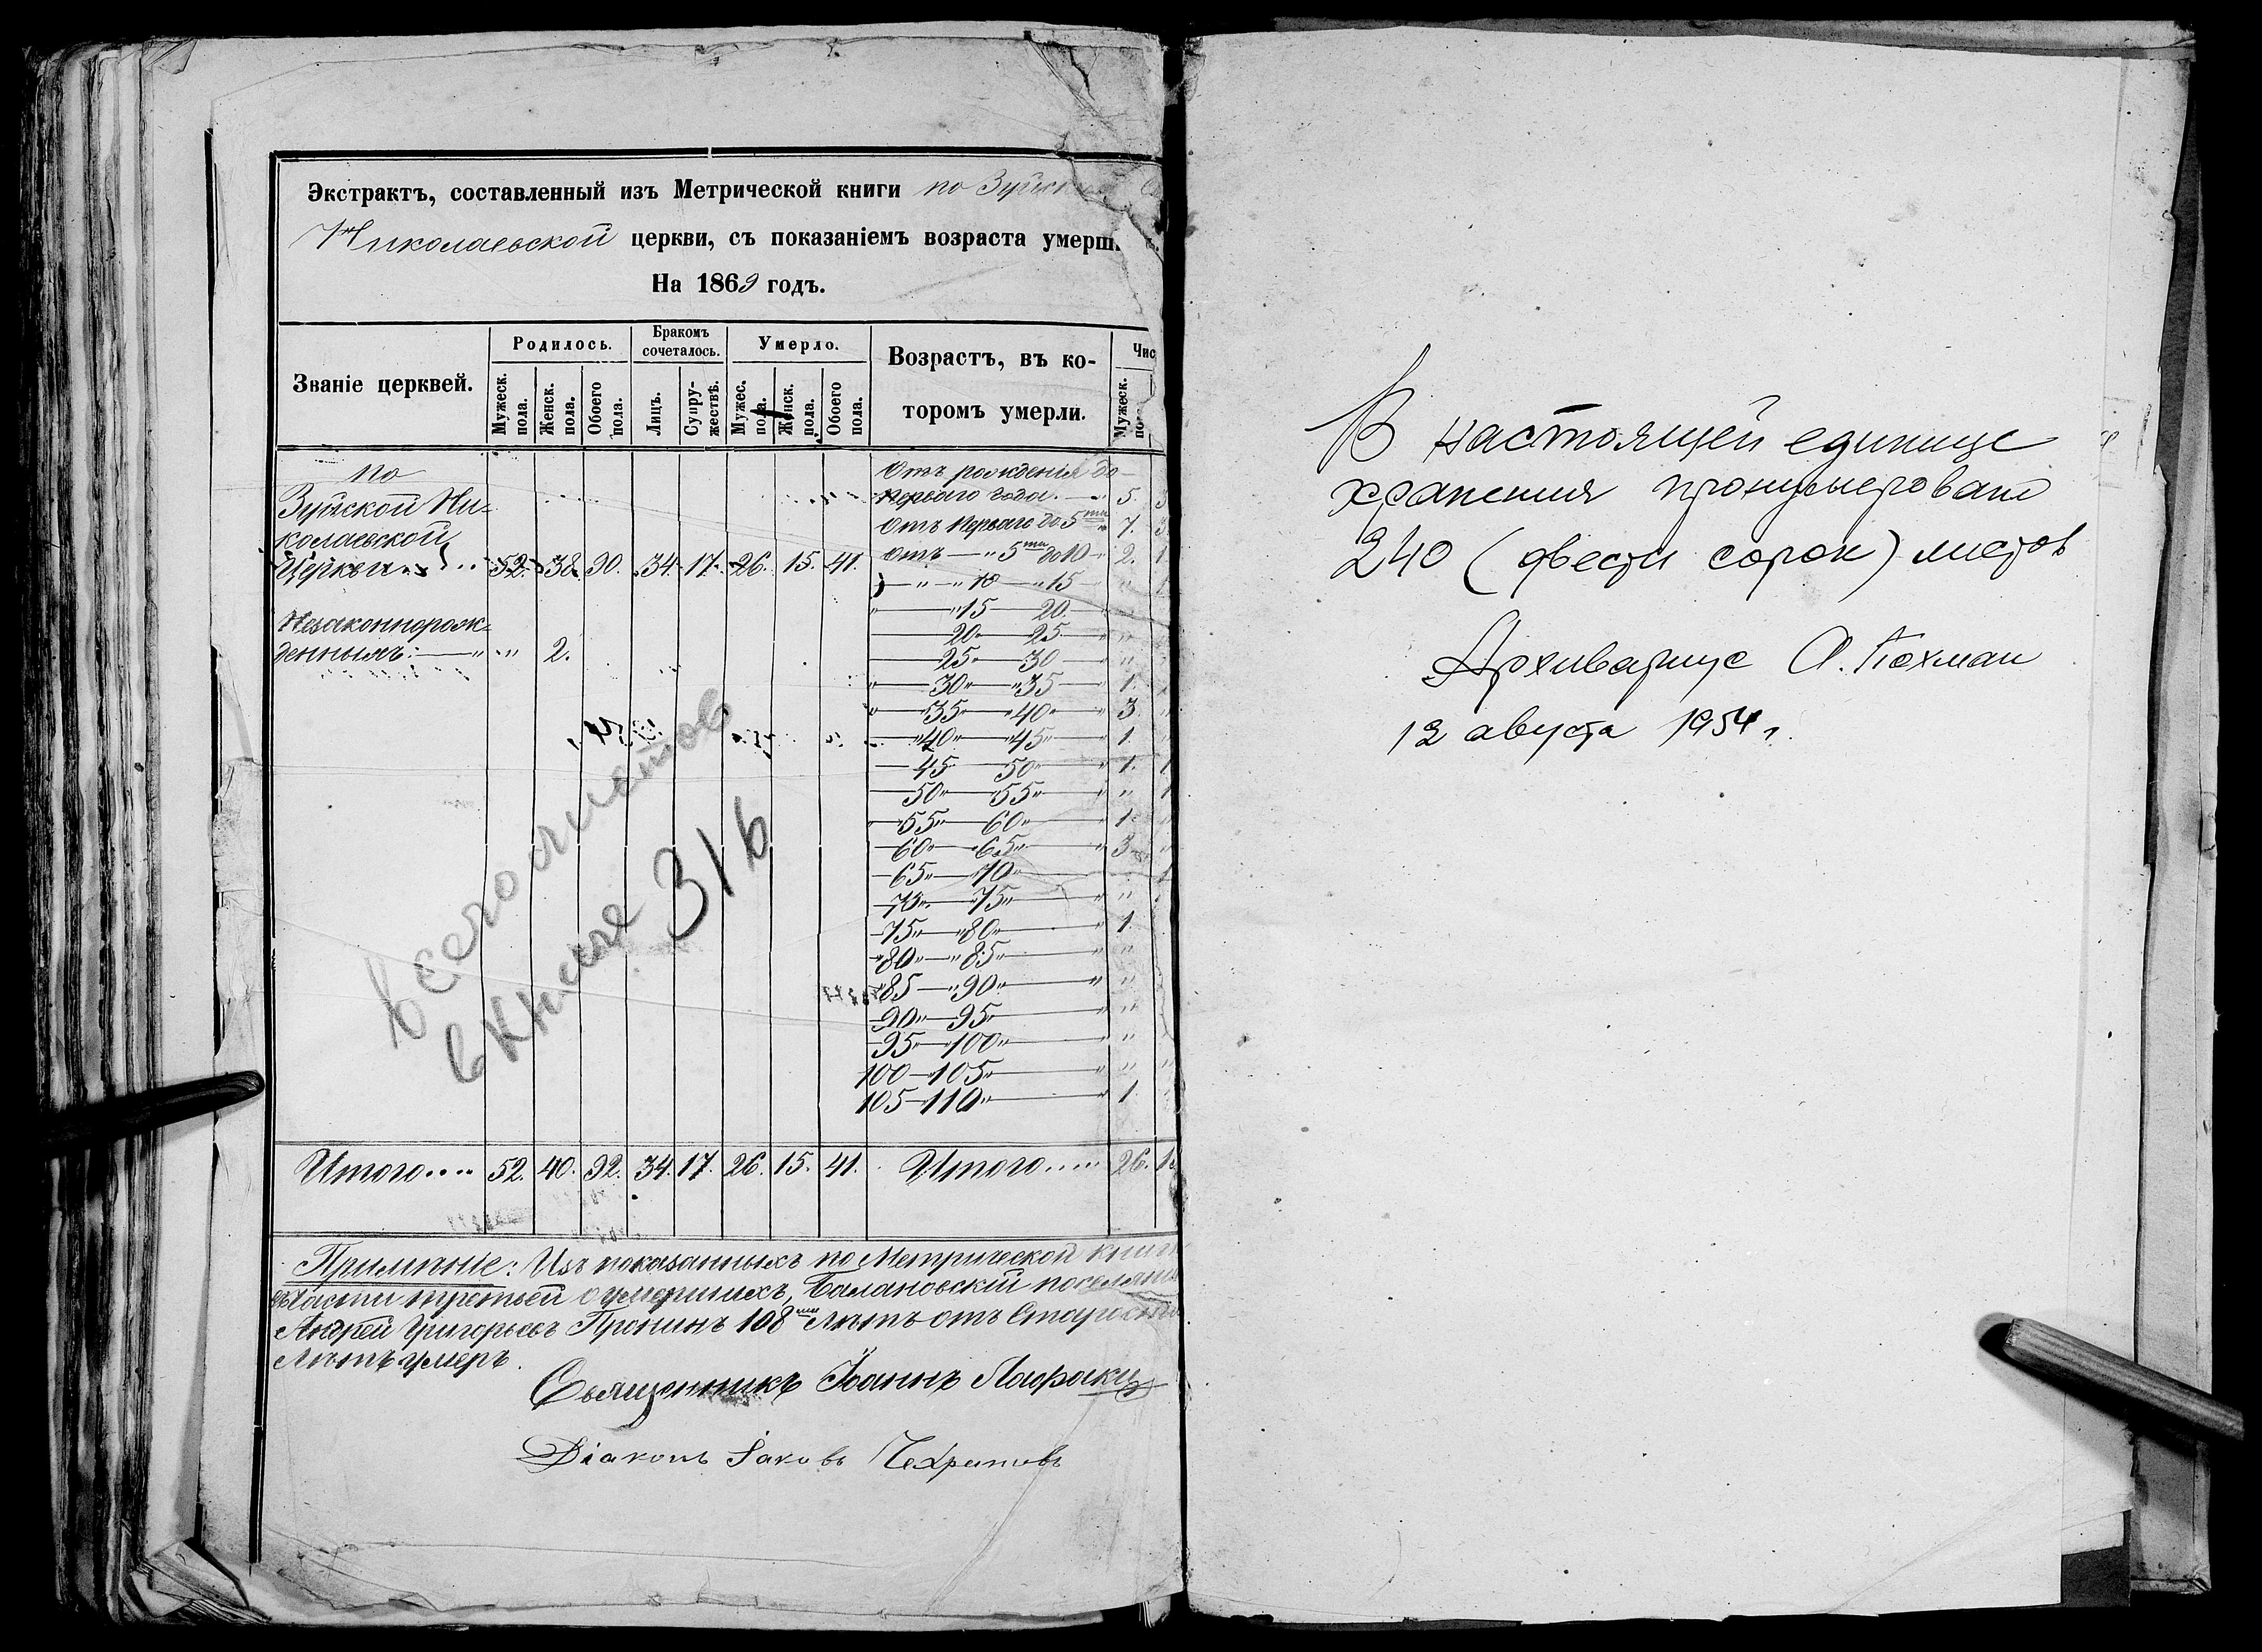 Экстрактъ, составленный изъ Метрической книги по Зуйской
Николаевской церкви, съ показаніемъ возраста умерш
На 1869 годъ.
Званіе церквей.
Родилось.
Бракомъ сочеталось.
Умерло.
Возрастъ, въ ко-
торомъ умерли.
Чис
Мужеск. пола.
Женск. пола.
Обоего пола.
Лицъ.
Супружествъ.
Мужес. пола.
Женск. пола.
Обоего пола.
Мужеск. по
по
Зуйской Ни-
колаевской
Церкви 52. 38. 90. 34. 17. 26. 15. 41.
Незаконнорож-
денныхъ: — „ „ 2.
Отъ рожденія до
перваго года. — „ 5. 3
Отъ перваго до 5ти „ 7. 3
Отъ — „ 5ти до 10 „ 2. 1
„ — „ 10 — „ 15 „ 1
„ — „ 15 — 20. — „
— 20 — 25 — „ „
— 25 — 30 — „ „
„ — 30 „ — „ 35 — „ 1.
„ — 35 „ — „ 40 „ — „ 3
— „ 40 „ — „ 45 „ — „ 1.
— 45 — 50 „ — „ 1. 1
— 50 „ — 55 „ — „ „ 1
— 55 „ — 60 „ — „ 1
— 60 „ — 65 „ — „ 3 „
— 65 „ — 70 „ — 1
— 70 „ — 75 „ — „ „
— 75 „ — „ 80 „ — „ 1
„ 80 „ — „ 85 „ — „ „
„ 85 — „ 90 „ — „ „
— 90 „ — 95 „ — „ „
— 95 „ — 100 „ — „ „
100 — 105 „ — „ „ „
105 — 110 „ — „ 1.
всего листов
в книге 316
Итого .... 52. 40. 92. 34. 17. 26. 15. 41. Итого ..... 26. 1
Примѣчніе: Изъ показанныхъ по Метрической книг
части третьей о умершихъ, Балановскій поселянин
Андрей Григорьевъ Пронинъ 108ми лѣтъ отъ Старости
лѣтъ умеръ.
Священникъ Іоаннъ
Діаконъ Іаковъ
В настоящей единице
хранения пронумеровано
240 (двести сорок) листов
Архивариус
12 августа 1954 г.